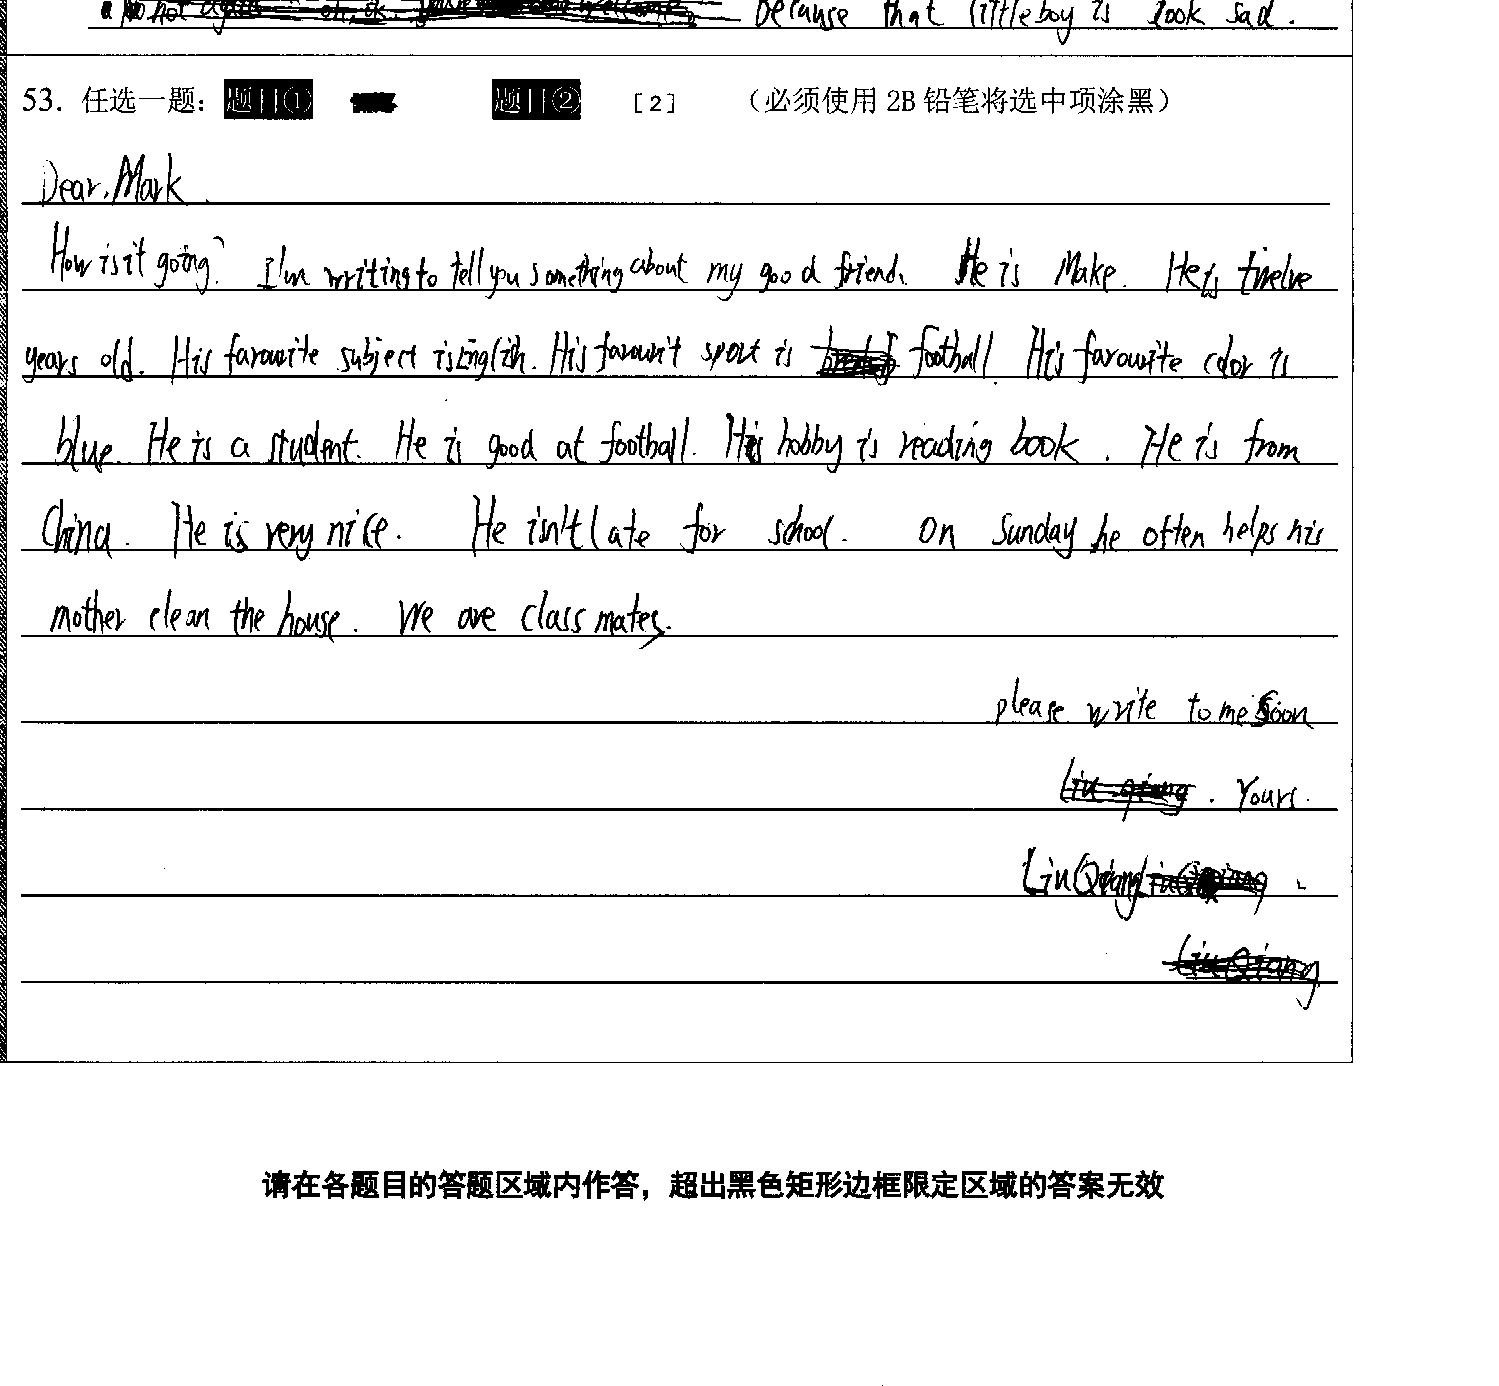 because that little boy is look sad.
53. 任选一题: 题目① 题目② [2] (必须使用 2B 铅笔将选中项涂黑)
Dear, Mark.
How is it going? I'm writing to tell you something about my good friend. He is Make. He is twelve
years old. His favourite subject is English. His favourit sport is football. His favourite color is
blue. He is a student. He is good at football. His hobby is reading book. He is from
China. He is very nice. He isn't late for school. On Sunday he often helps his
mother clean the house. We are classmates.
please write to me soon
Yours.
Liu Qiang
请在各题目的答题区域内作答，超出黑色矩形边框限定区域的答案无效